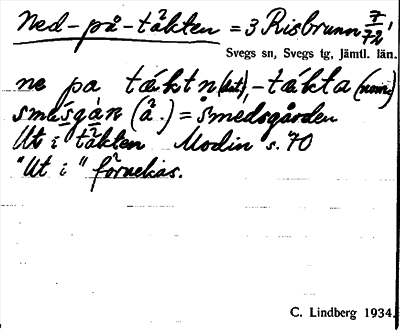 Ned-på-täkten = 3 Risbrunn 7/72,
Svegs sn, Svegs tg, Jämtl. län.
ne pa täktn (dat), -täkta (nom)
smésgàn (å.) = smedsgården
Ut i täkten Modin s. 70
"Ut i" förnekas.
C. Lindberg 1934.